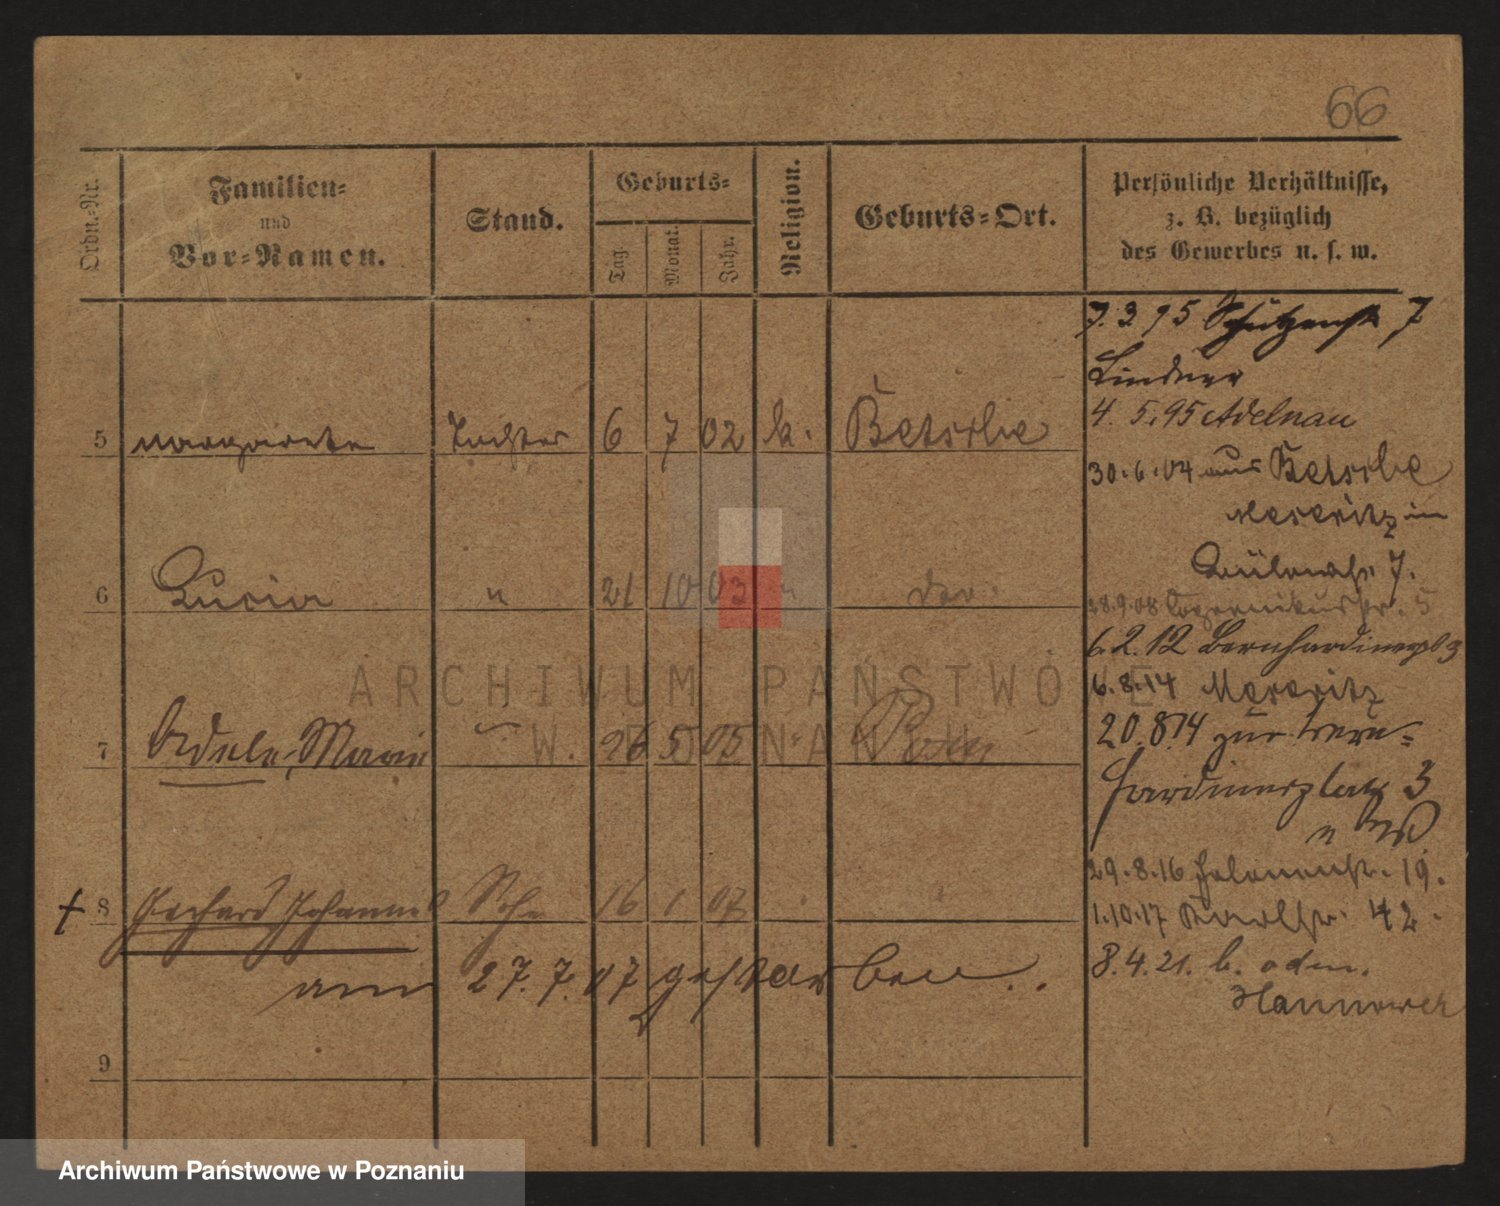 66
Ordn.-Nr.
Familien-
und
Vor-Namen.
Stand.
Geburts-
Tag.
Monat.
Jahr.
Religion.
Geburts-Ort.
Persönliche Verhältnisse,
z. B. bezüglich
des Gewerbes u. s. w.
5 Margarete Tochter 6 7 02 k. Betsche
6 Lucia " 21 10 03 " do.
7 Adele, Marie 26 5 05 Posen
8 Gerhard Johannes Sohn 16 1 07
am 27.7.07 gestorben.
9
7.3.95 Schützenstr 7
Lindner
4. 5. 95 Adelnau
30.6.04 aus Betsche
Meseritz in
7.
28.9.08 str. 5
6.2.12 Bernhardinerpl 3
6.8.14 Meseritz
20.8.14 zur Bern-
hardinerplatz 3
29.8.16 19.
1.10.17 Karlstr. 42.
8.4.21. b. adm.
Hannover
ARCHIWUM PAŃSTWOWE
W POZNANIU
Archiwum Państwowe w Poznaniu